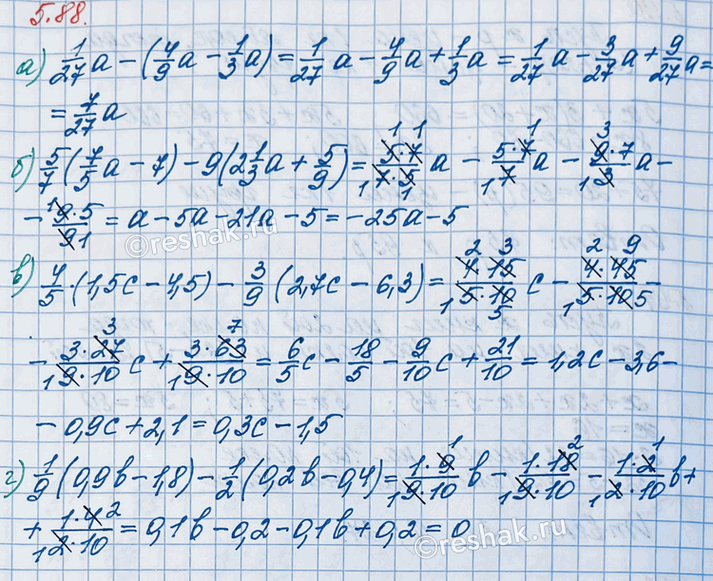 5.88.
а) 1/27 a − (4/9 a − 1/3 a) = 1/27 a − 4/9 a + 1/3 a = 1/27 a − 3/27 a + 9/27 a =
= 7/27 a
б) 5/7 (7/5 a − 7) − 9(2 1/3 a + 5/9) = 5·7/7·5 a − 5·7/7 a − 9·7/3 a −
− 9·5/9 = a − 5a − 21a − 5 = −25a − 5
в) 4/5 · (1,5c − 4,5) − 3/9 (2,7c − 6,3) = 4·15/5·10 c − 4·45/5·10 −
− 3·27/9·10 c + 3·63/9·10 = 6/5 c − 18/5 − 9/10 c + 21/10 = 1,2c − 3,6 −
− 0,9c + 2,1 = 0,3c − 1,5
г) 1/9 (0,9b − 1,8) − 1/2 (0,2b − 0,4) = 1·9/9·10 b − 1·18/9·10 − 1·2/2·10 b +
+ 1·4/2·10 = 0,1b − 0,2 − 0,1b + 0,2 = 0
©reshak.ru